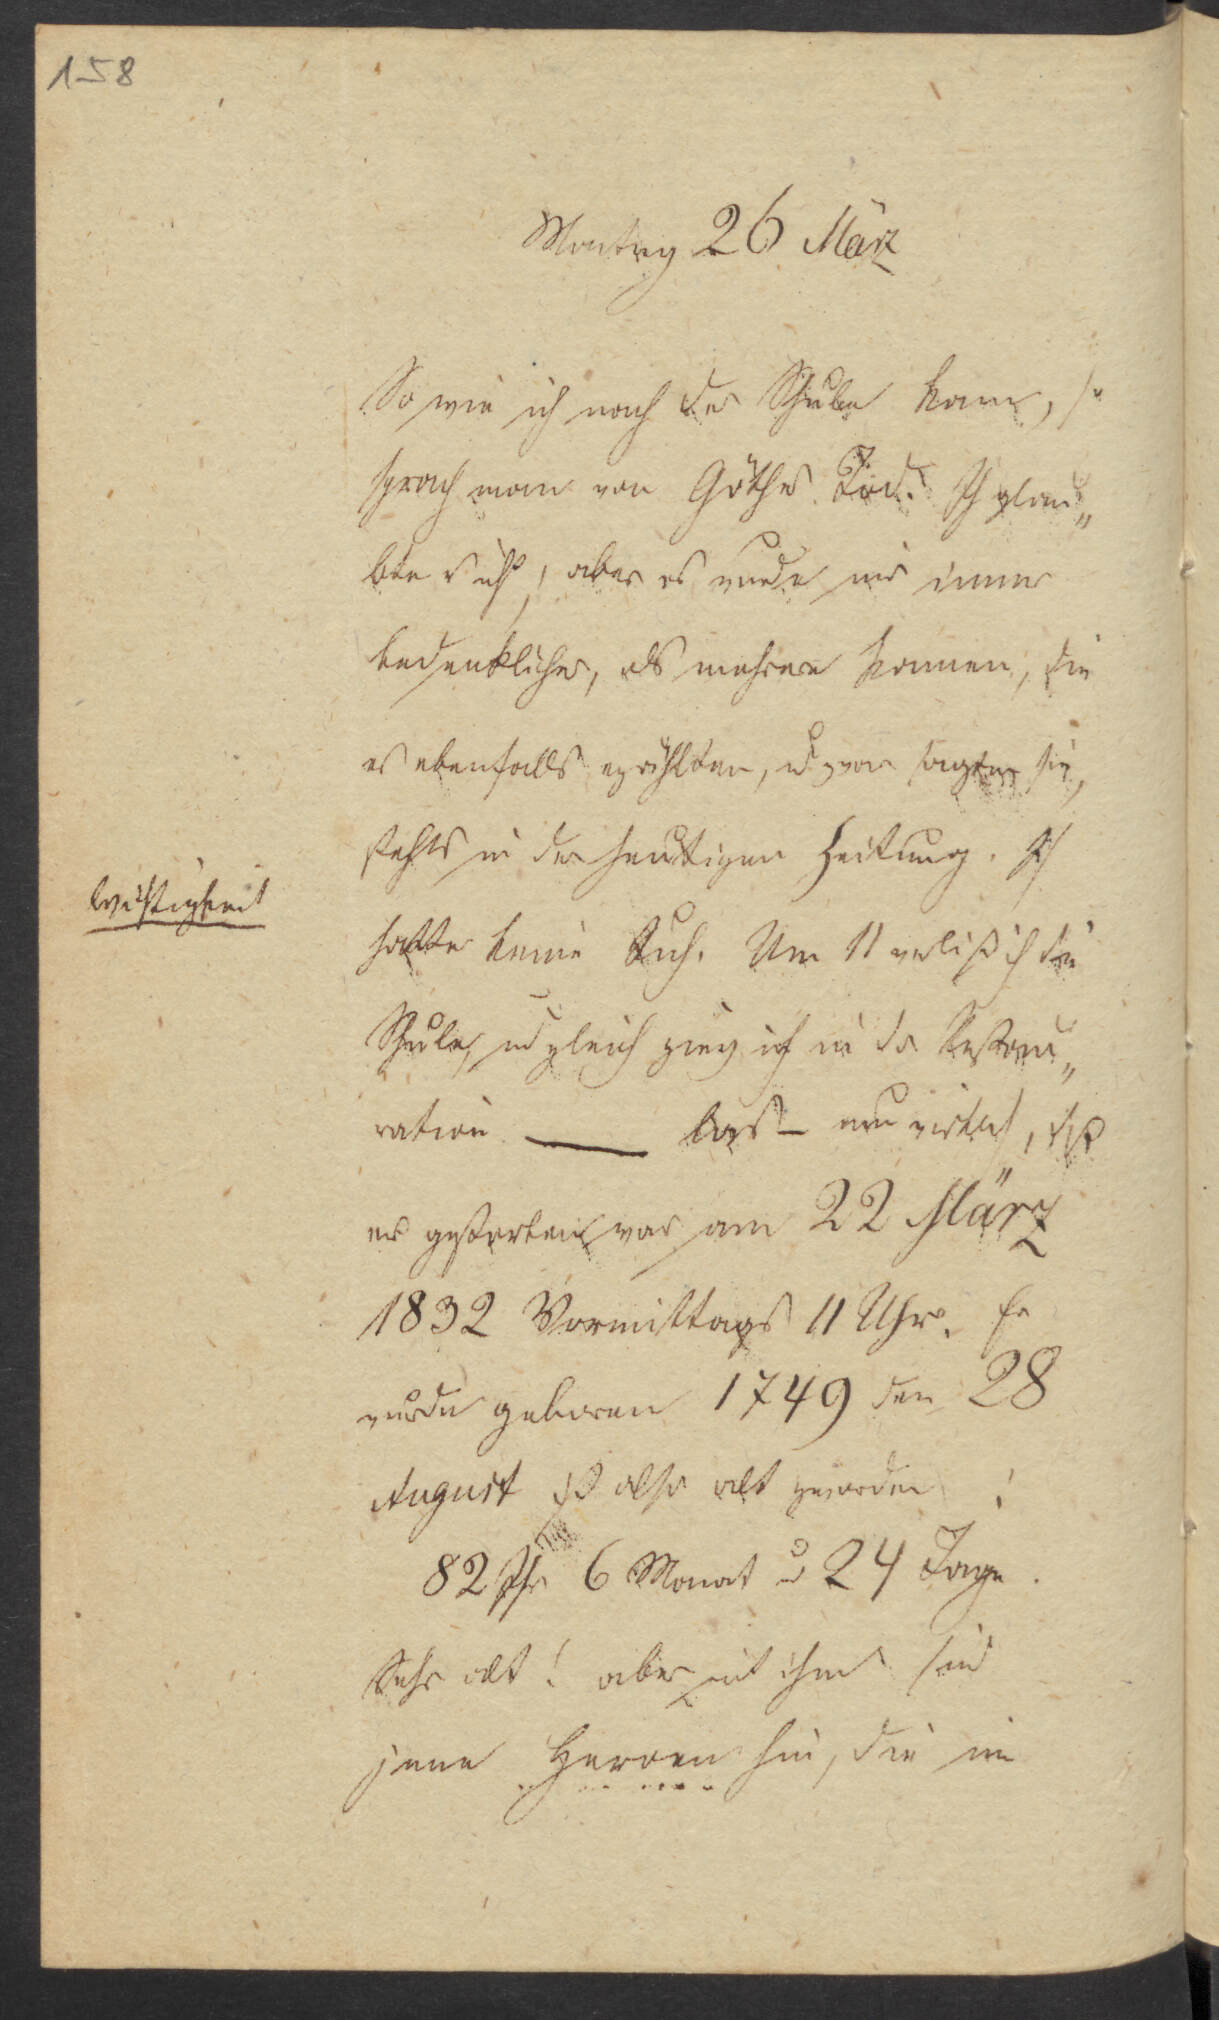 158
Montag 26 März
So wie ich nach der Schule kam, so
sprach man von Göthes Tod. Ich glau„
bte nicht, aber es wurde mir immer
bedenklicher, als mehrere kamen, die
es ebenfalls erzählten, u zwar sagten sie,
stehts in der heutigen Zeitung. Ich
Wichtigkeit
hatte keine Ruh. Um 11 verließ ich die
Schule, und gleich ging ich in die Restau„
ration — las nun wirklich, daß
er gestorben war am 22 März
1832 Vormittags 11 Uhr. Er
wurde geboren 1749 den 28
August ist also alt geworden :
82 Jhr 6 Monat u 24 Tage.
Sehr alt! aber mit ihm sind
jene Heroen hin, die im